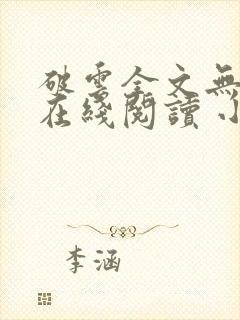 破雲全文無
在綫閱讀 小
李涵